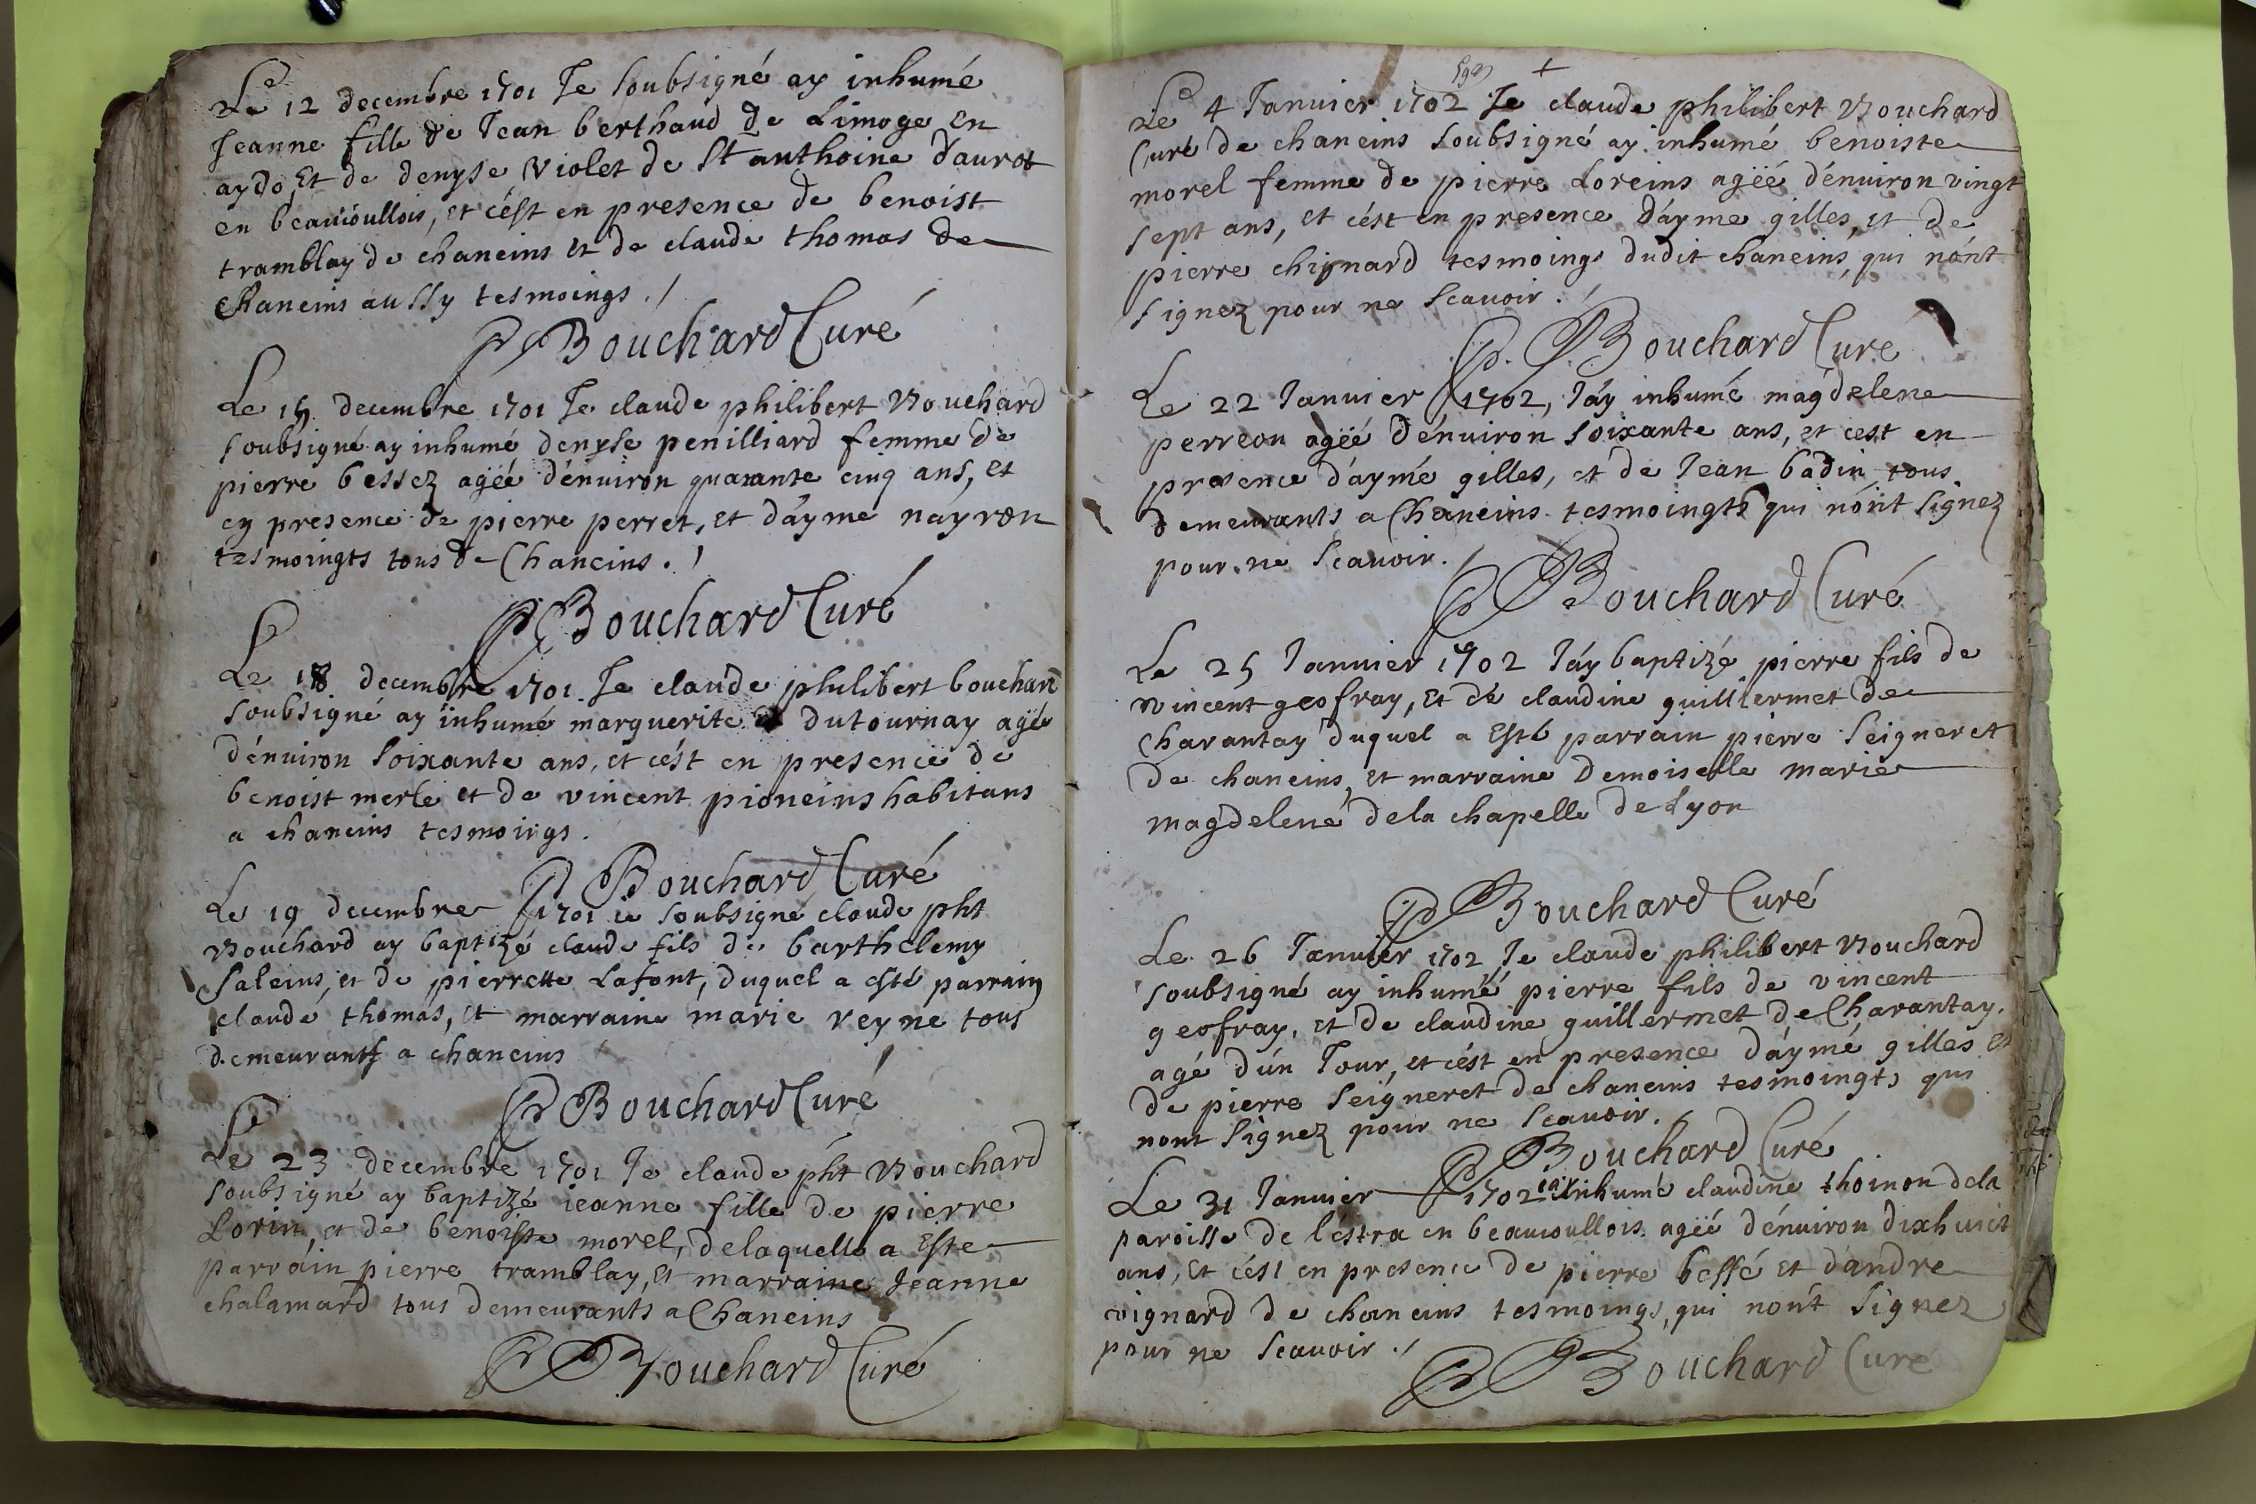 Le 12 decembre 1701 Je soubsigné ay inhumé
Jeanne fille de Jean berthaud de Limoge en
et de denyse violet de St anthoine
en beauioullois, et c'ést en presence de benoist
tramblay de chaneins et de claude thomas de
Chaneins aussy tesmoings ./
P Bouchard Curé
Le 15 decembre 1701 Je claude philibert Bouchard
soubsigné ay inhumé denyse penilliard femme de
pierre bessez agéé dénuiron quarante cinq ans, et
en presence de pierre perret, et d'ayme nayron
tesmoingts tous de Chaneins ./
P Bouchard Curé
Le 18 decembre 1701 Je claude philibert bouchard
soubsigné ay inhumé marguerite dutournay agéé
dénuiron soixante ans, et cést en presence de
benoist merle et de vincent pioneins habitans
a chaneins tesmoings.
P Bouchard Curé
Le 19 decembre 1701 ie soubsigné claude pht
Bouchard ay baptizé claude fils de barthelemy
saleins, et de pierrette Lafont, duquel a esté parrain
claude thomas, et marraine marie reyne tous
demeurants a chaneins
P Bouchard Curé
Le 23 decembre 1701 Je claude pht Bouchard
soubsigné ay baptizé ieanne fille de pierre
Lorin, et de benoiste morel, delaquelle a Este
parrain pierre tramblay, et marraine Jeanne
chalamard tous demeurants a Chaneins
P Bouchard Curé
Le 4 Januier 1702 Je claude philibert Bouchard
Curé de chaneins soubsigné ay inhumé benoiste
morel femme de pierre Loreins agéé dénuiron vingt
sept ans, et cést en presence d'ayme gilles, et de
pierre chignard tesmoings dudit chaneins, qui nónt
signez pour ne scauoir ./
P. Bouchard Curé
Le 22 Januier 1702, Jáy inhumé magdelene
perreon agéé dénuiron soixante ans, et cest en
presence d'aymé gilles, et de Jean badin tous
demeurants a Chaneins tesmoingts qui nónt signez
pour ne scauoir ./
P Bouchard Curé
Le 25 Januier 1702 Jáy baptizé pierre fils de
vincent geofray, et de claudine guilliermet de
charantay duquel a Esté parrain pierre seigneret
de chaneins, et marraine demoiselle marie
magdelene dela chapelle de Lyon
P Bouchard Curé
Le 26 Januier 1702 Je claude philibert Bouchard
soubsigné ay inhumé pierre fils de vincent
geofray, et de claudine guillermet de Charantay,
agé dún Jour, et cést en presence d'áymé gilles et
de pierre seigneret de chaneins tesmoingts qui
nont signez pour ne scauoir./
P Bouchard Curé
Le 31 Januier 1702 iay inhumé claudine thoinon dela
paroisse de léstra en beauioullois agéé dénuiron dixhuict
ans, et cést en presence de pierre bessé et dandre
de chaneins tesmoings, qui nont signez
pour ne scauoir ./
P Bouchard Curé